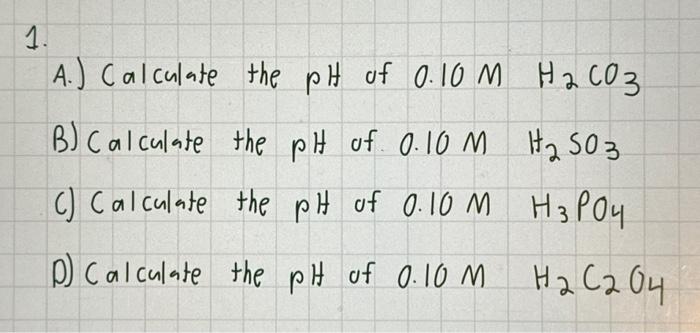 1.
A.) Calculate the pH of 0.10 M H2CO3
B) Calculate the pH of 0.10 M H2SO3
C) Calculate the pH of 0.10 M H3PO4
D) Calculate the pH of 0.10 M H2C2O4